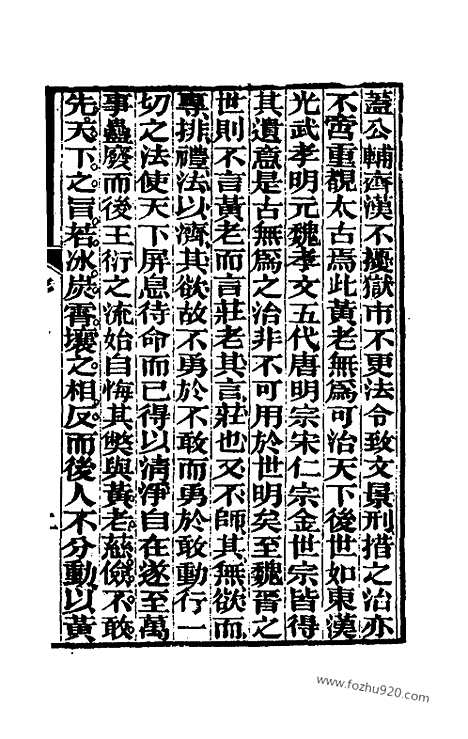 蓋公輔齊漢不擾獄市不更法令致文景刑措之治亦
不啻重覩太古焉此黃老無爲可治天下後世如東漢
光武孝明元魏孝文五代唐明宗宋仁宗金世宗皆得
其遺意是古無爲之治非不可用於世明矣至魏晉之
世則不言黃老而言莊老其言莊也又不師其無欲而
專排禮法以濟其欲故不勇於不敢而勇於敢動行一
切之法使天下屏息待命而已得以清淨自在遂至萬
事蠱廢而後王衍之流始自悔其弊與黃老慈儉不敢
先天下之旨若冰炭霄壤之相反而後人不分動以黃
www.fozhu920.com